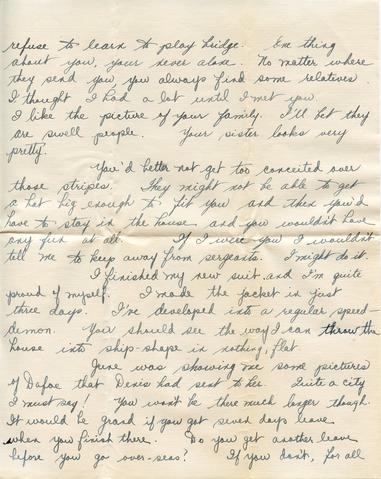 refuse to learn to play bridge. One thing
about you, your never alone. No matter where
they send you you always find some relatives.
I thought I had a lot until I met you.
I like the picture of your family. I'll bet they
are swell people. Your sister looks very
pretty.
You'd better not get too conceited over
those stripes. They might not be able to get
a hat big enough to fit you and then you'd
have to stay in the house and you wouldn't have
any fun at all. If I were you I wouldn't
tell me to keep away from sergeants. I might do it.
I finished my new suit and I'm quite
proud of myself. I made the jacket in just
three days. I've developed into a regular speed-
demon. You should see the way I can throw the
house into ship-shape in nothing flat
June was showing me some pictures
of Dafoe that Denis had sent to her. Quite a city
I must say! You won't be there much longer though.
It would be grand if you got seven days leave
when you finish there. Do you get another leave
before you go over-seas? If you don't, for all